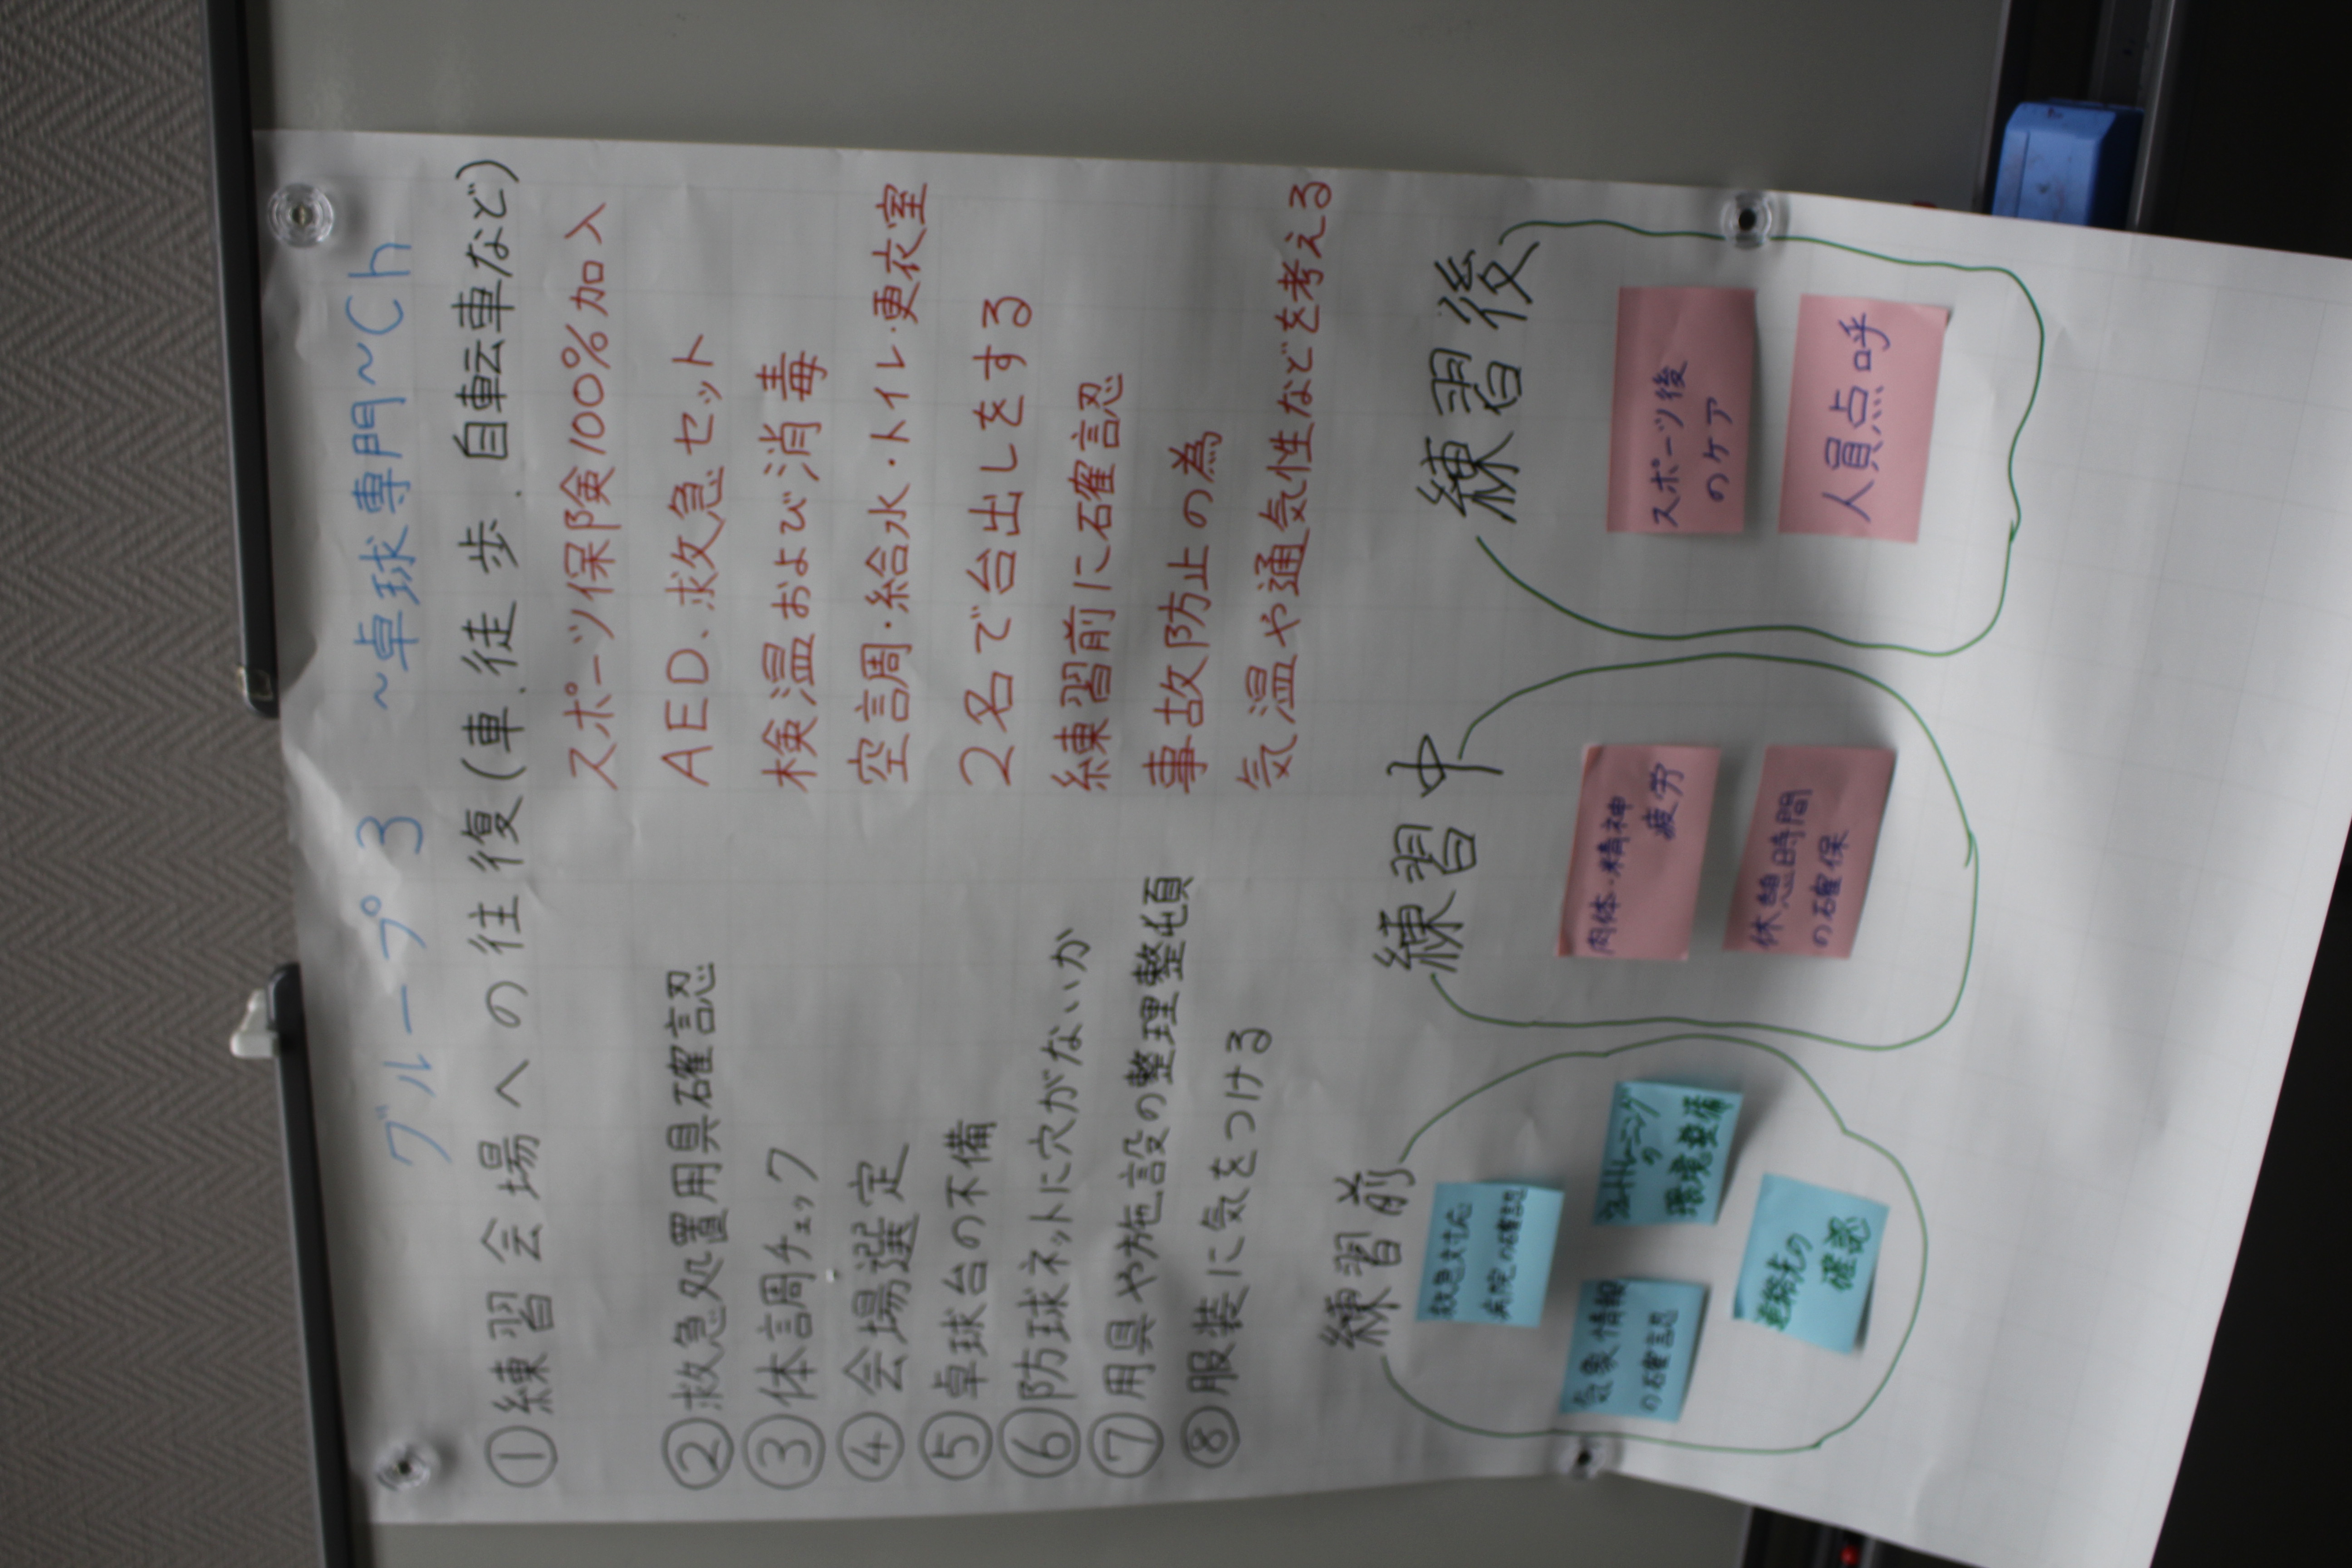 グループ3 ~卓球専門~Ch
①練習会場への往復(車.徒歩.自転車など)
スポーツ保険100%加入
②救急処置用具確認 AED、救急セット
③体調チェック 検温および消毒
④会場選定 空調・給水・トイレ・更衣室
⑤卓球台の不備 2名で台出しをする
⑥防球ネットに穴がないか 練習前に確認
⑦用具や施設の整理整頓 事故防止の為
⑧服装に気をつける 気温や通気性などを考える
練習前
救急対応
病院の確認
気象情報
の確認
トレーニング
の
環境整備
連絡先の
確認
練習中
肉体・精神
疲労
休憩時間
の確保
練習後
スポーツ後
のケア
人員点呼